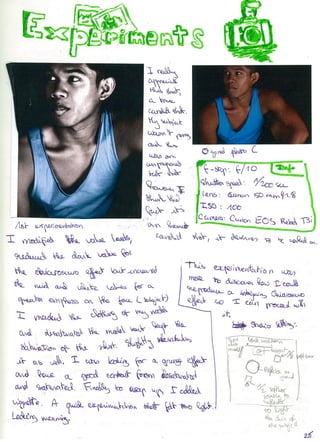 Experiments
I really
appreciate
this shot,
a true
candid shot.
My subject
wasn't posing,
and this
was an
unprepared
test shot
However I
think the
fact it's
an honest
candid shot, it deserves to be worked on.
Original photo
Info
F-stop: F/10
Shutter speed: 1/200 sec
Lens: Canon 50 mm f/1.8
ISO: 100
Camera: Canon EOS Rebel T3i
1st experimentation
I modified the value levels,
reduced the dark value for
the chiaroscuro effect but increased
the mid and white values for a
greater emphasis on the face (subject)
I masked the clothing of my model
and desaturated the model but kept the
saturation of the shirt. Slightly desaturating
it as well. I was looking for a grunge effect
and have a good contrast from desaturated
and saturated. Finally to wrap up, I added
vignette. A quick experimentation that felt too light.
Lacking meaning.
This experimentation was
more to discover how I could
reproduce a intriguing Chiaroscuro
effect so I can proceed with
it.
Studio setting: